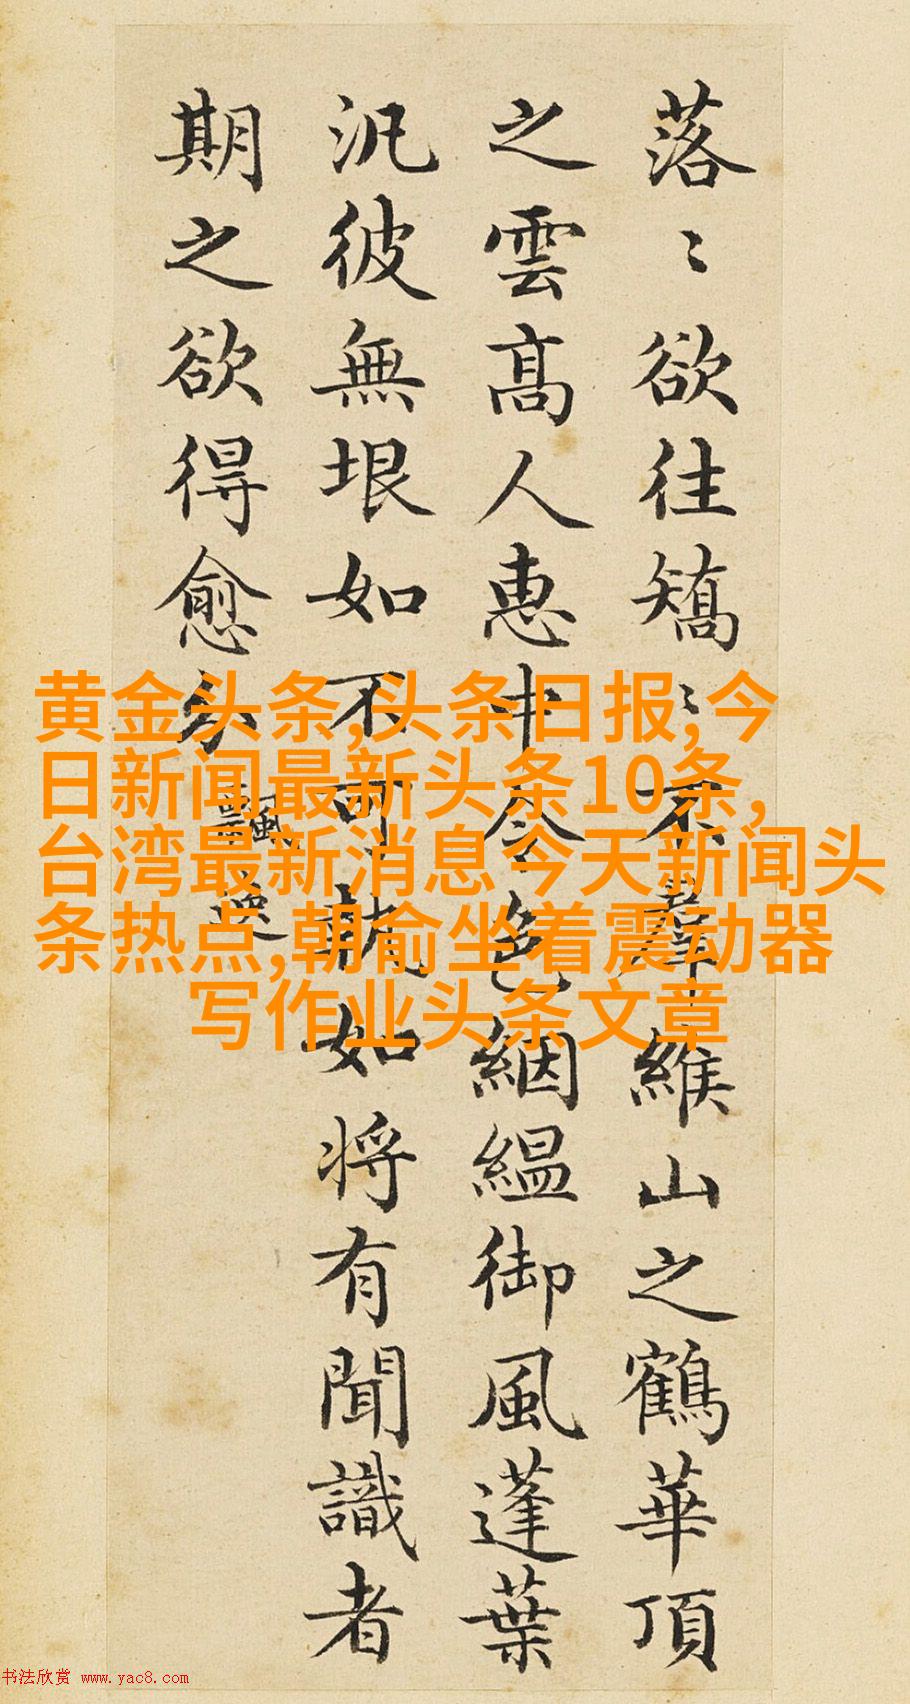 落〻欲往矯〻不羣緱山之鶴華頂
之雲高人惠中令色絪緼御風蓬葉
汎彼無垠如不可執如將有聞識者
期之欲得愈分
飄逸
黄金头条,头条日报,今
日新闻最新头条10条,
台湾最新消息今天新闻头
条热点,朝俞坐着震动器
写作业头条文章
书法欣赏 www.yac8.com